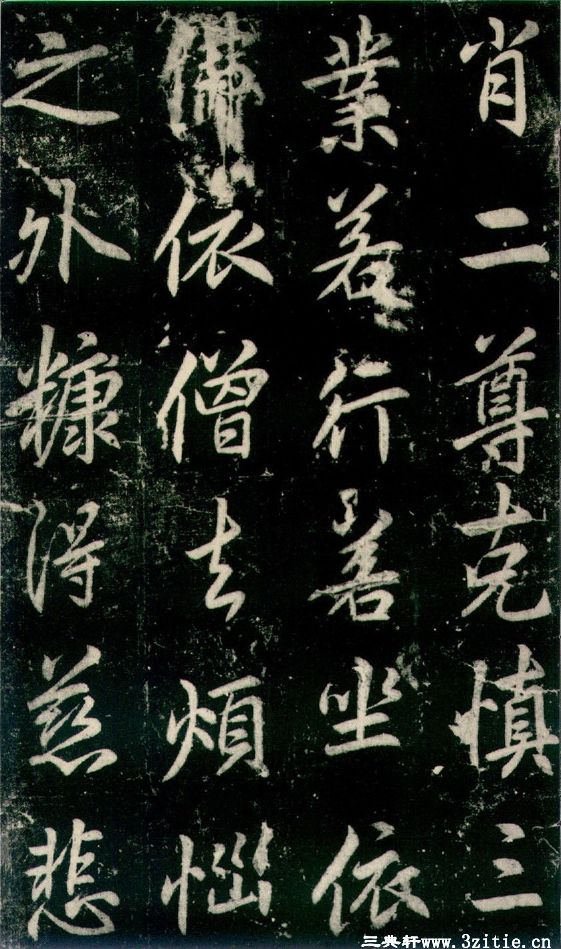 肖二尊克慎三
業若行若坐依
佛依僧去煩惱
之外糠得慈悲
三典轩www.3zitie.cn